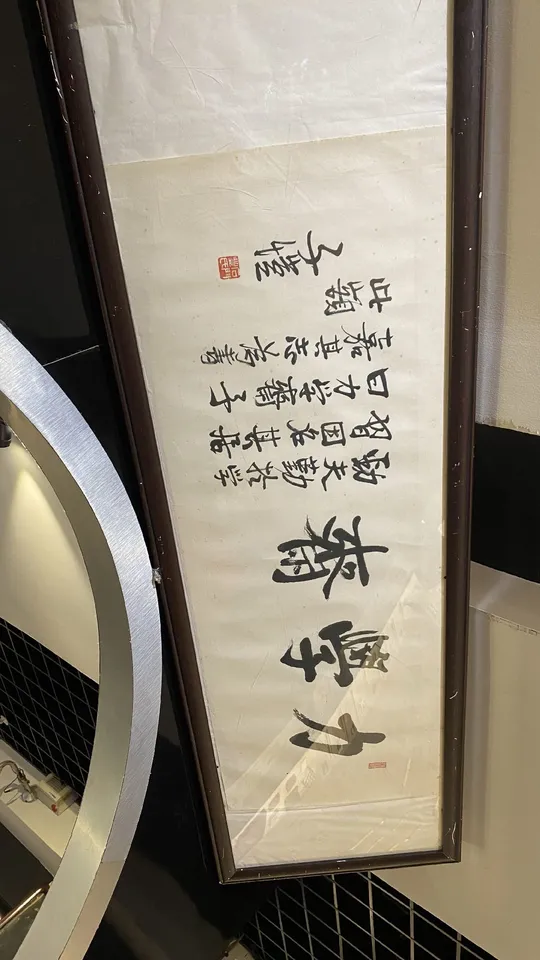 力學齋
勁夫勤於學
習因名其居
曰力學齋予
嘉其志為書
此額
子愷